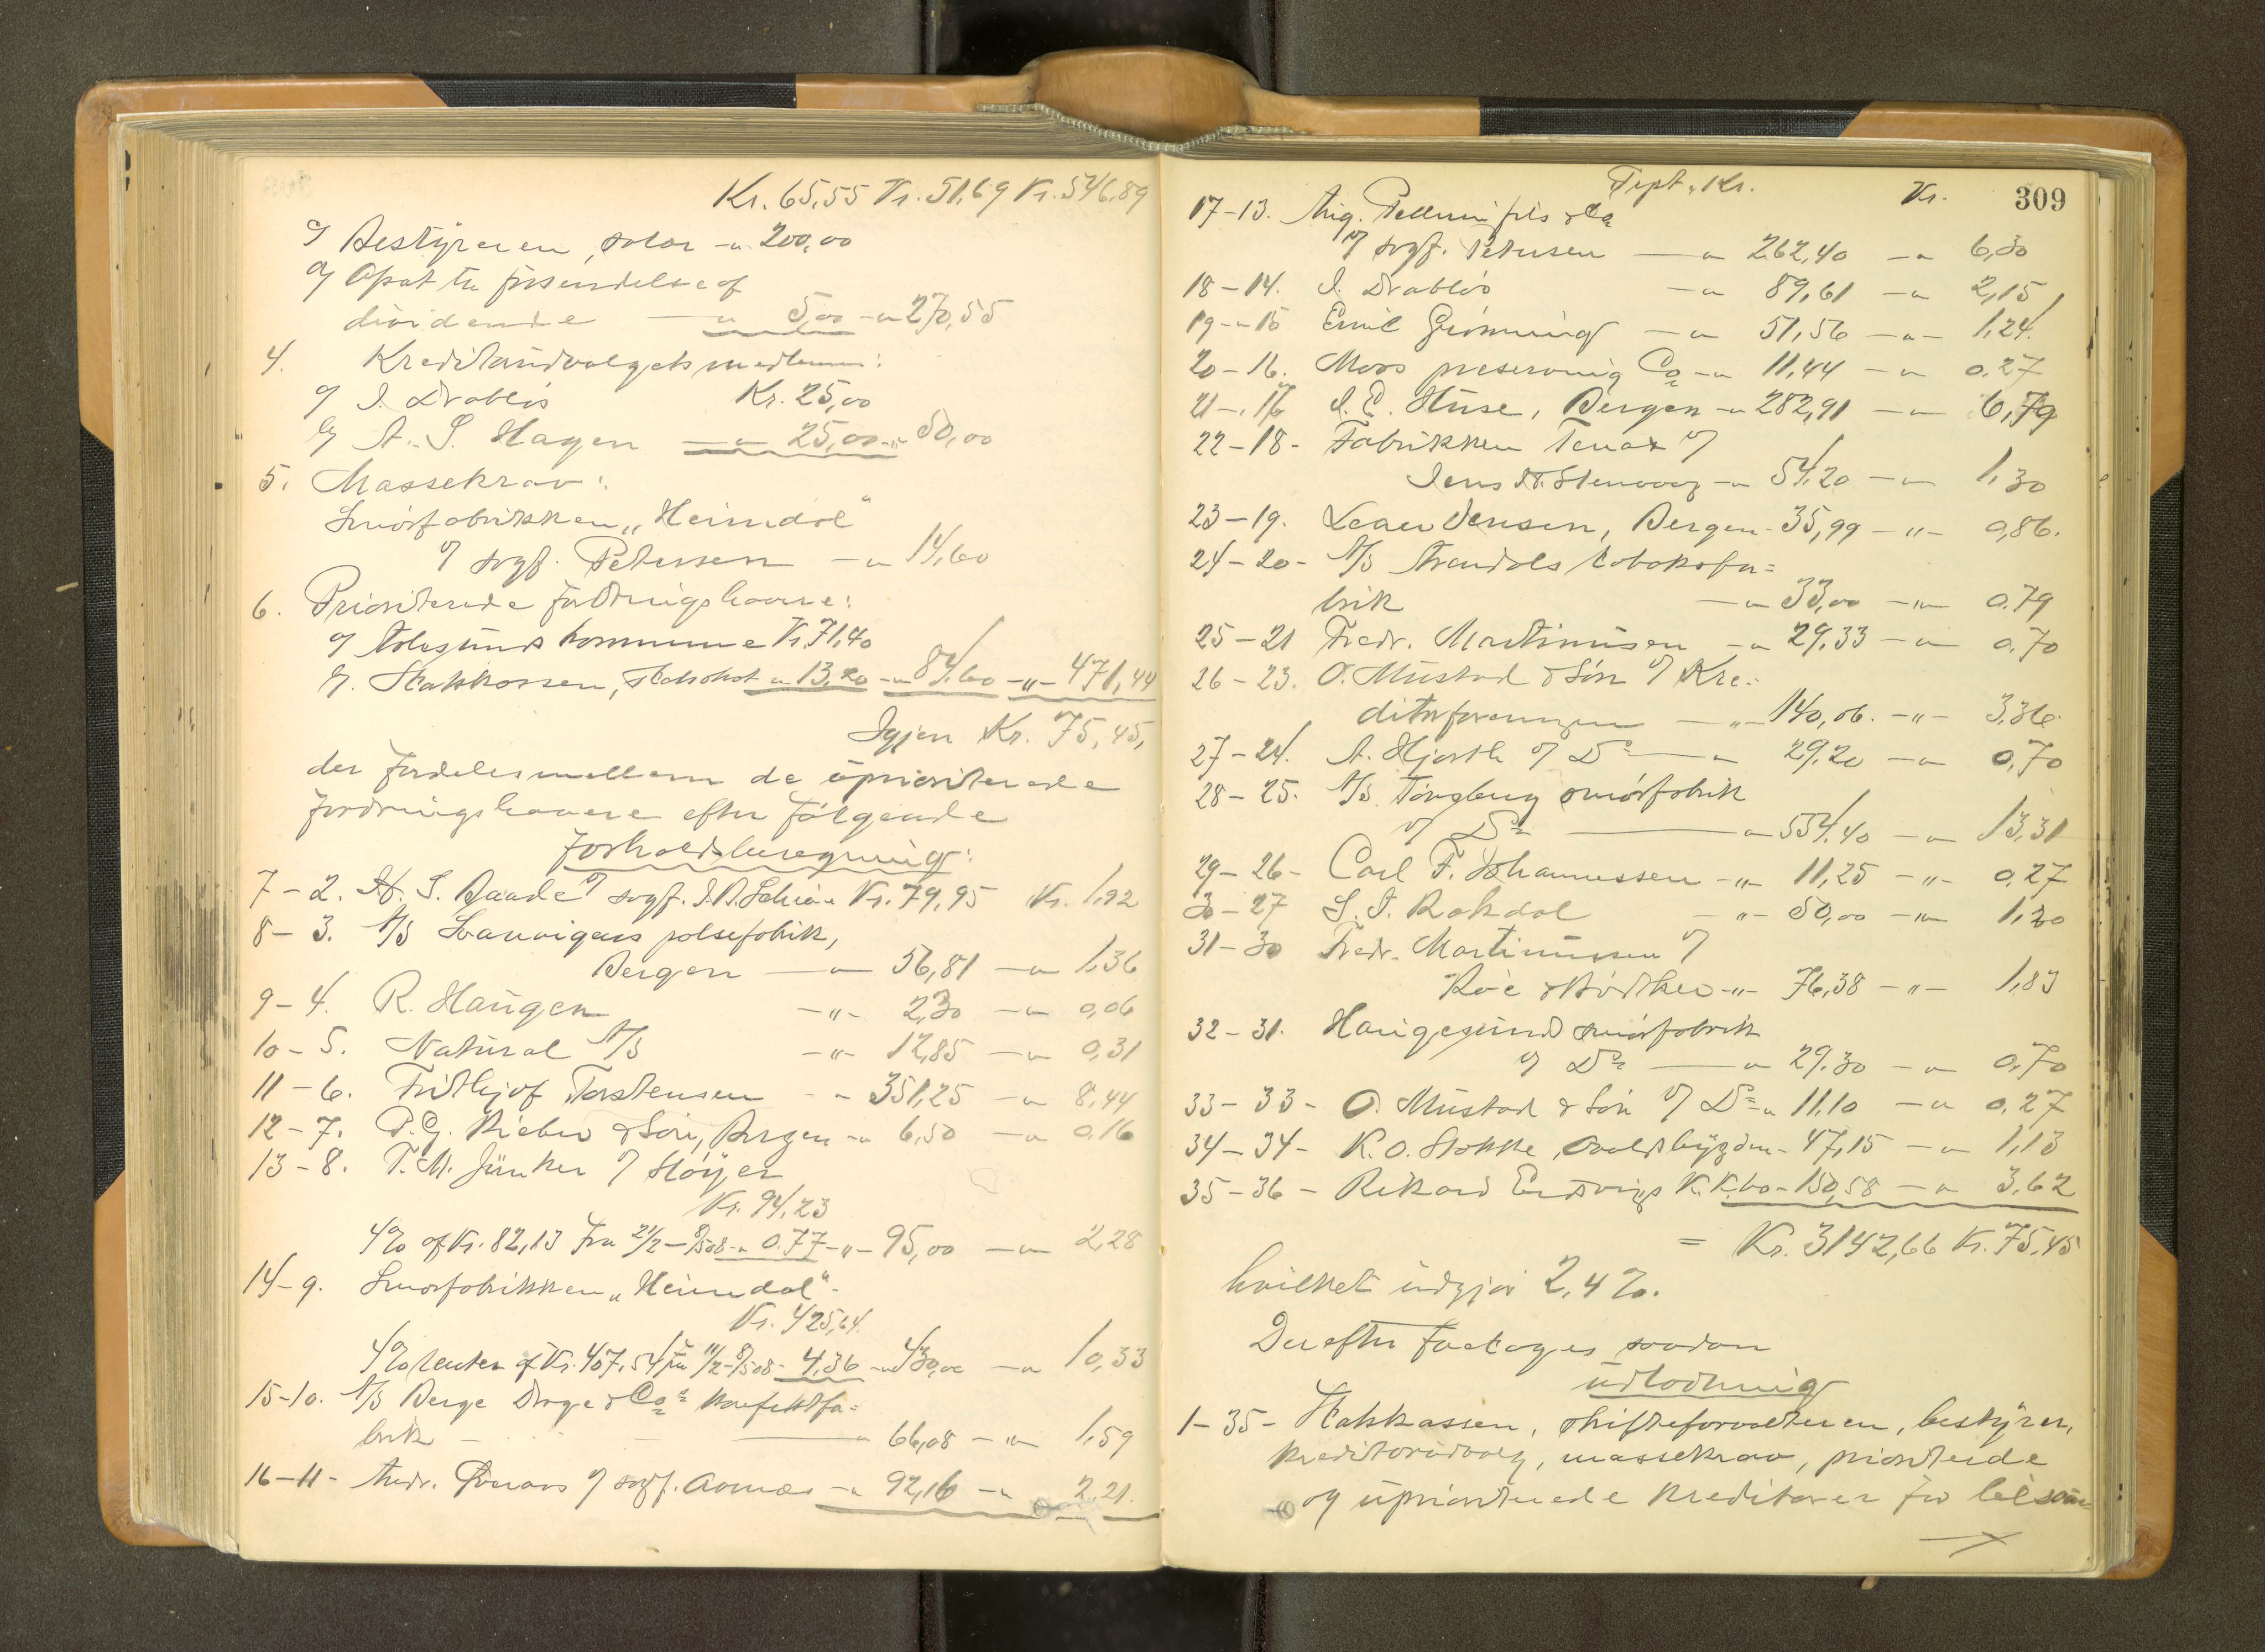 Kr. 65,55 Kr. 51,69 Kr. 546,89
a/ Bestyreren, salær -"- 200,00
b/ Afsat til forsendelse af
dividende -"- 5,00 -"- 270,55
4. Kreditorudvalgets medlemmer:
a/ J. Drabløs Kr. 25,00
b/ A. S. Hagen -"- 25,00 -"- 50,00
5. Massekrav:
Smørfabrikken „Heimdal"
v/ sagf. Petersen -"- 14,60
6. Prioriterede fordringshavere:
a/ Aalesunds kommune Kr. 71,40
b/. Statskassen, statsskat -"- 13,20 -"- 84,60 -"- 471,44
Igjen Kr. 75,45,
der fordeles mellem de uprioriterede
fordringshavere efter følgende
forholdsberegning:
7-2. H. S. Baade v/ sagf. Kr. 79,95 Kr. 1,92
8-3. A/S Svanvigens pølsefabrik,
Bergen -"- 56,81 -"- 1,36
9-4. R. Haugen -"- 2,30 -"- 0,06
10-5. Natural A/S -"- 12,85 -"- 0,31
11-6. Fridthjof Torstensen -"- 351,25 -"- 8,44
12-7. P. G. Rieber & Søn, Bergen -"- 6,50 -"- 0,16
13-8. T. M. Junker v/ Høyer
Kr. 94,23
4% af Kr. 82,13 fra 21/2-8/5 08 -"- 0.77 -"- 95,00 -"- 2,28
14-9. Smørfabrikken „Heimdal"
Kr. 425,64
4% renter af Kr. 407,54 fra 11/2-8/5 08 - 4,36 -"- 430,00 -"- 10,33
15-10. A/S Berge Drage & Co's konfektfa=
brik -"- 66,08 -"- 1,59
16-11- Andr. v/ sagf. Aarnæs -"- 92,16 -"- 2,21.
309
Tpt. Kr. Kr.
17-13. Aug. Pellerin fils & Co
v/ sagf. Petersen -"- 262,40 -"- 6,30
18-14. J. Drabløs -"- 89,61 -"- 2,15
19-"-15 Emil Grønning -"- 51,56 -"- 1,24.
20-16. Moss preserving Co -"- 11,44 -"- 0,27
21-17. J. E. Huse, Bergen -"- 282,91 -"- 6,79
22-18- Fabrikken Tenax v/
Jens H. Stenvaag -"- 54,20 -"- 1,30
23-19. Jensen, Bergen - 35,99 -"- 0,86.
24-20- A/S Arendals tobaksfa=
brik -"- 33,00 -"- 0,79
25-21 Fredr. Martinusen -"- 29,33 -"- 0,70
26-23. O. Mustad & Søn v/ Kre=
ditorforeningen -"- 140,06. -"- 3,36
27-24. A. Hjorth v/ Do -"- 29,20 -"- 0,70
28-25. A/S Tønsberg smørfabrik
v/ Do -"- 554,40 -"- 13,31
29-26- Carl F. Johannessen -"- 11,25 -"- 0,27
30-27 S. J. Rakdal -"- 50,00 -"- 1,20
31-30 Fredr. Martinussen v/
Roe & Bødtker -"- 76,38 -"- 1,83
32-31. Haugesund smørfabrik
v/ Do -"- 29,30 -"- 0,70
33-33- O. Mustad & Søn v/ Do -"- 11,10 -"- 0,27
34-34- K. O. Stokke, Ovoldsbygden - 47,15 -"- 1,13
35-36- Rikard Endsvigs K.K.bo - 150,58 -"- 3,62
= Kr. 3142,66 Kr. 75,45
hvilket udgjør 2,4%.
Derefter foretoges saadan
udlodning
1-35- Statskassen, skifteforvalteren, bestyrer,
kreditorudvalg, massekrav, prioriterede
og uprioriterede kreditorer fra